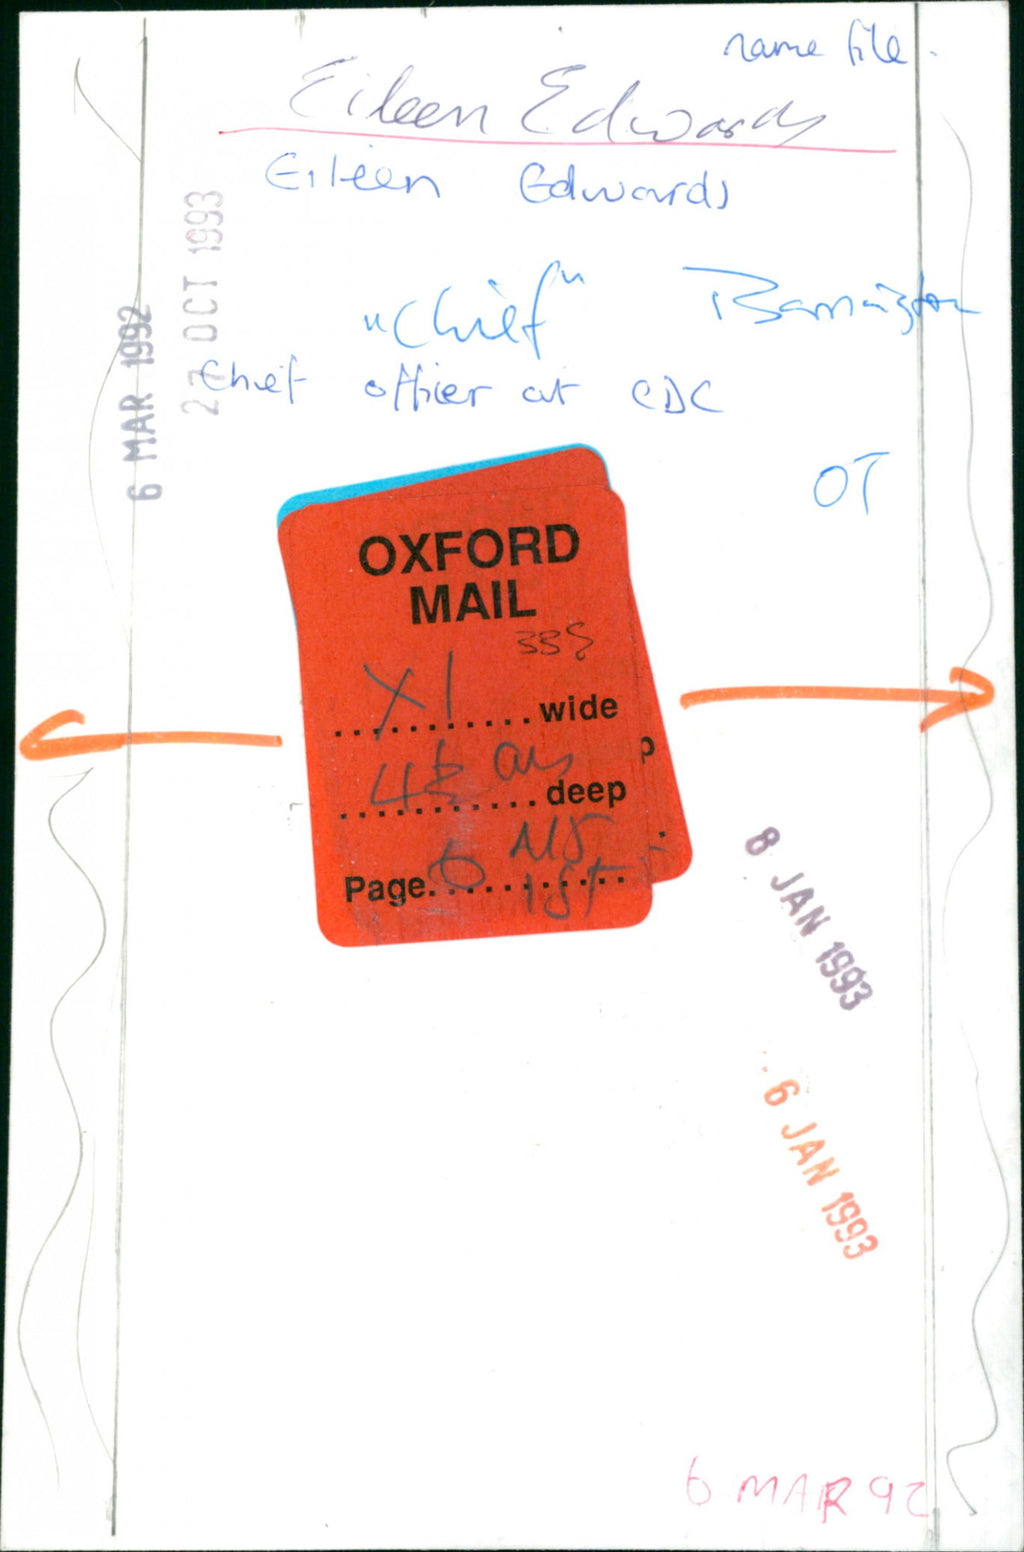 name file.
Eileen Edwards
Eileen Edwards
"Chief" Barrington
Chief officer at CDC
OT
6 MAR 1992
27 OCT 1993
OXFORD
MAIL
X1
..........wide
deep
Page.6..........
1ST
P
8 JAN 1993
6 JAN 1993
6 MAR 92